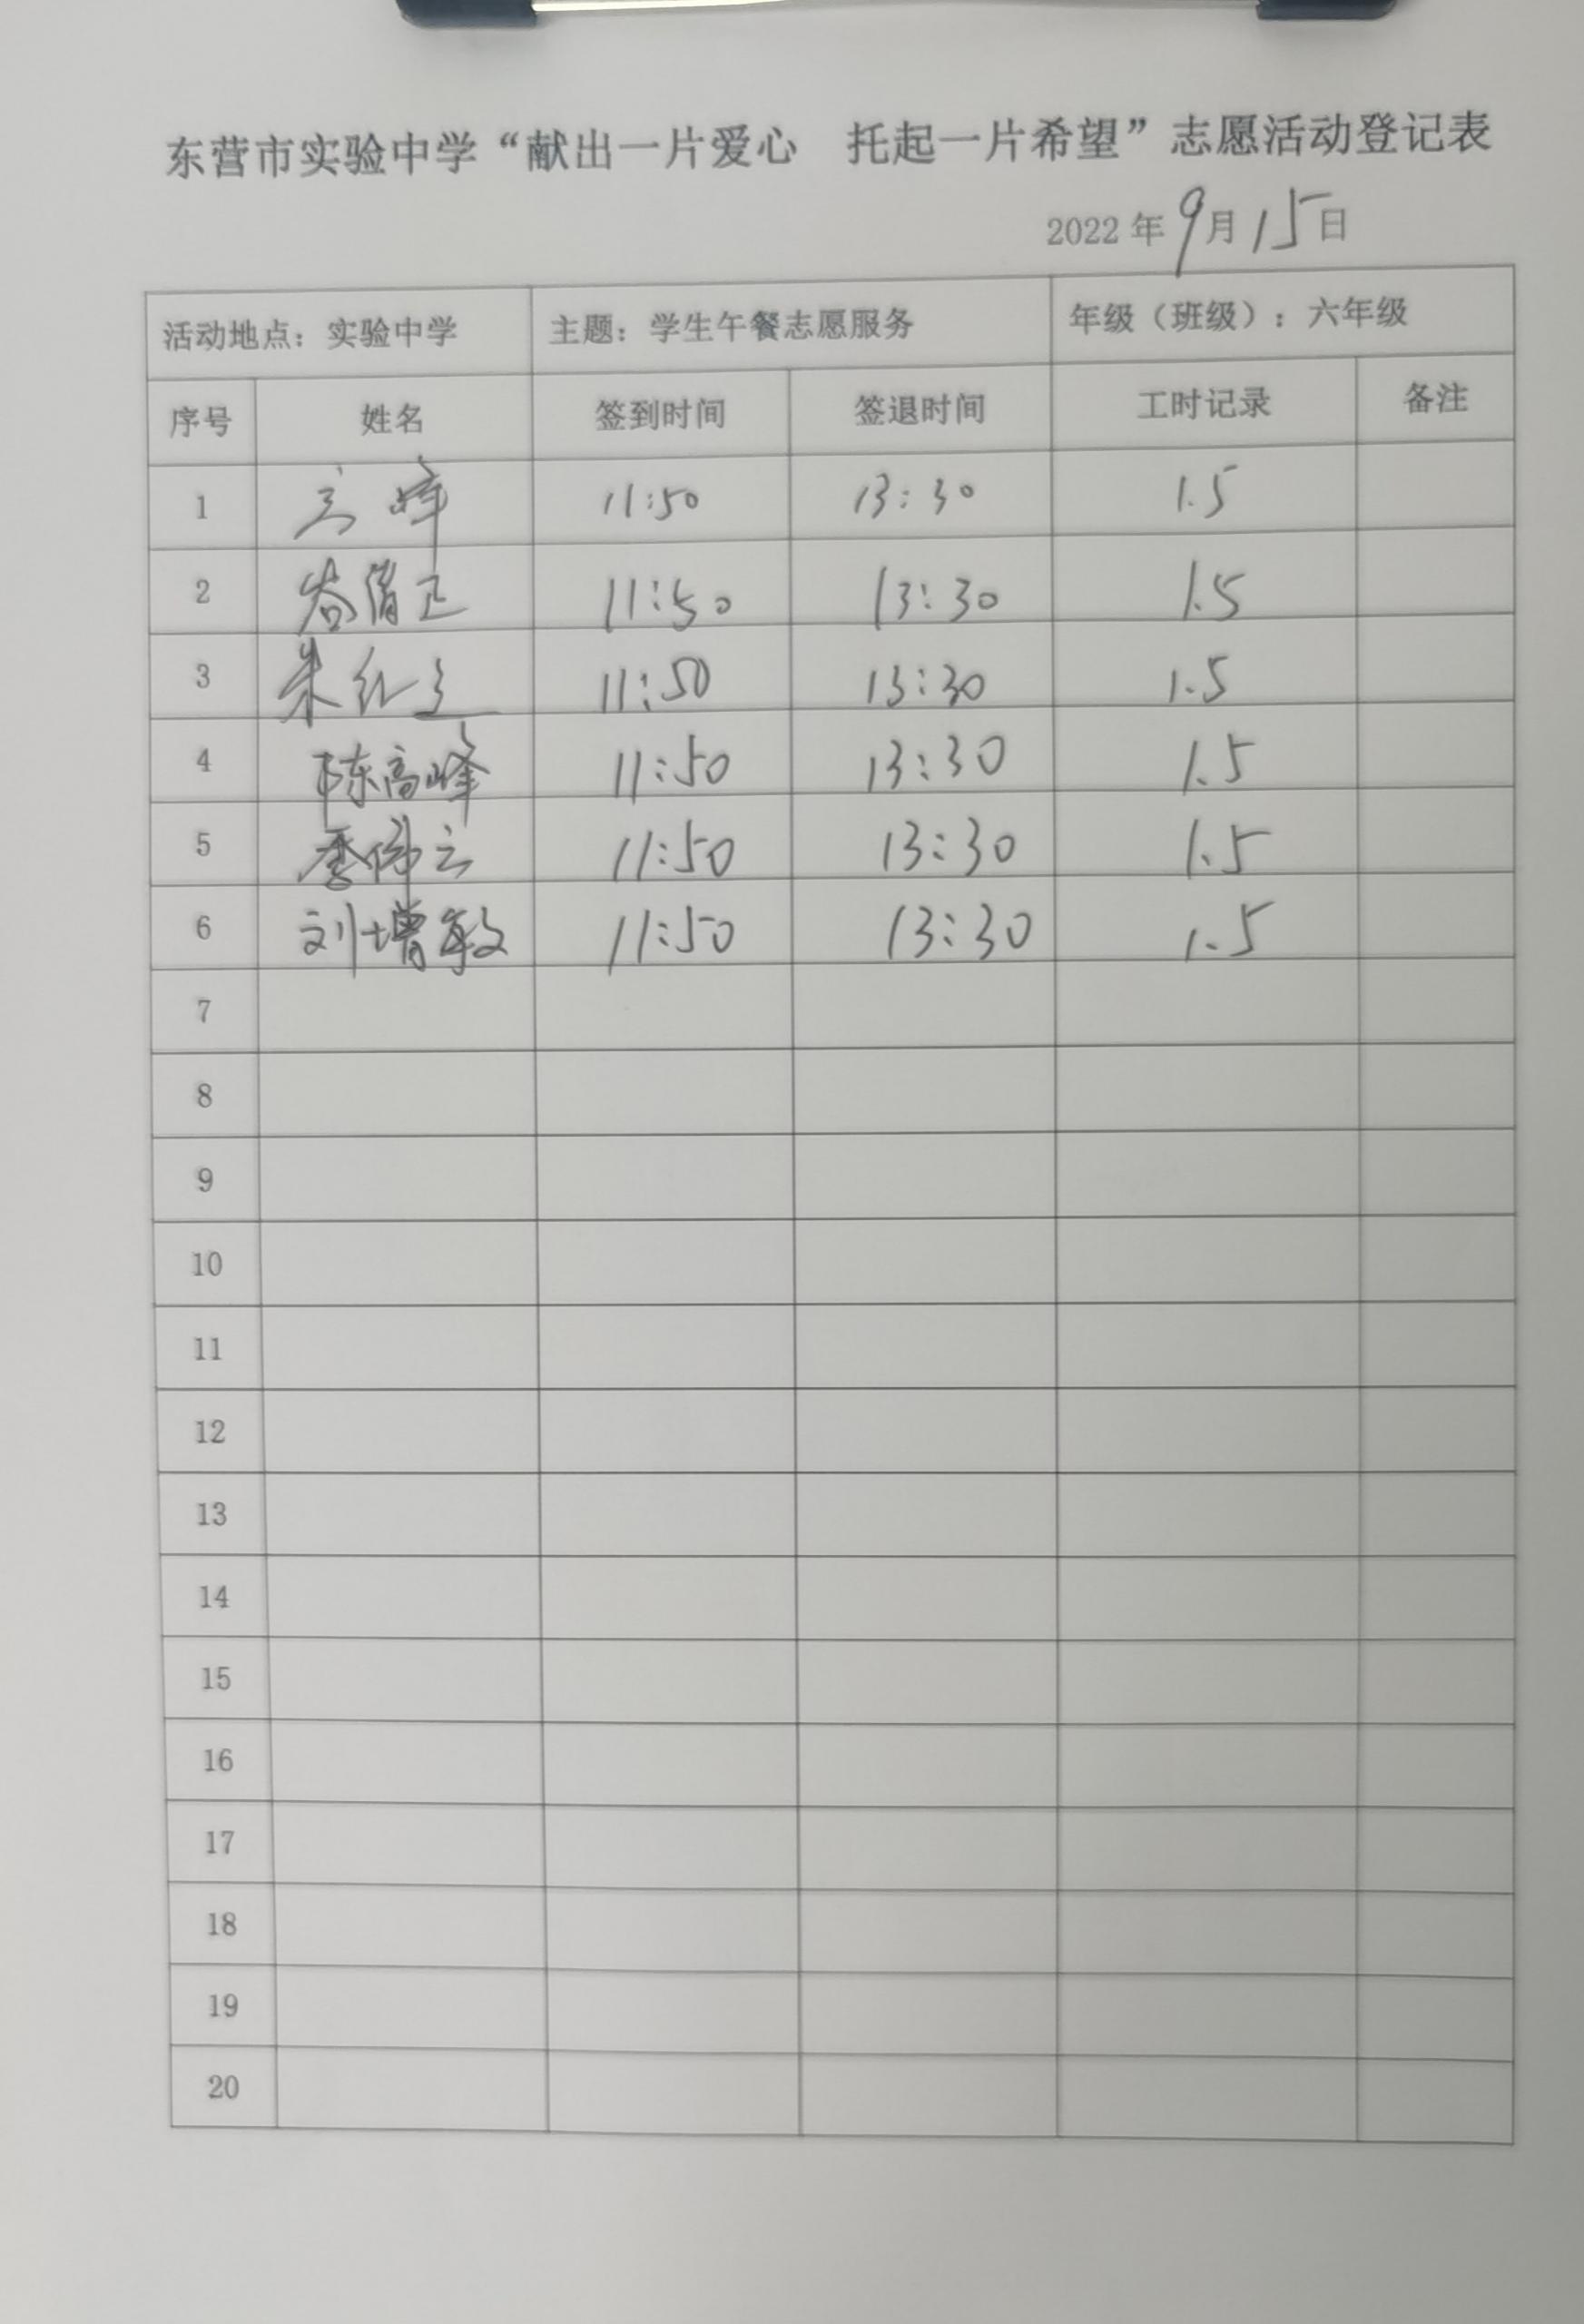 东营市实验中学“献出一片爱心　托起一片希望”志愿活动登记表
2022 年 9 月 15 日
活动地点：实验中学 主题：学生午餐志愿服务 年级（班级）：六年级
序号 姓名 签到时间 签退时间 工时记录 备注
1 高峰 11:50 13:30 1.5
2 11:50 13:30 1.5
3 朱红 11:50 13:30 1.5
4 陈高峰 11:50 13:30 1.5
5 季伟云 11:50 13:30 1.5
6 刘增敏 11:50 13:30 1.5
7
8
9
10
11
12
13
14
15
16
17
18
19
20